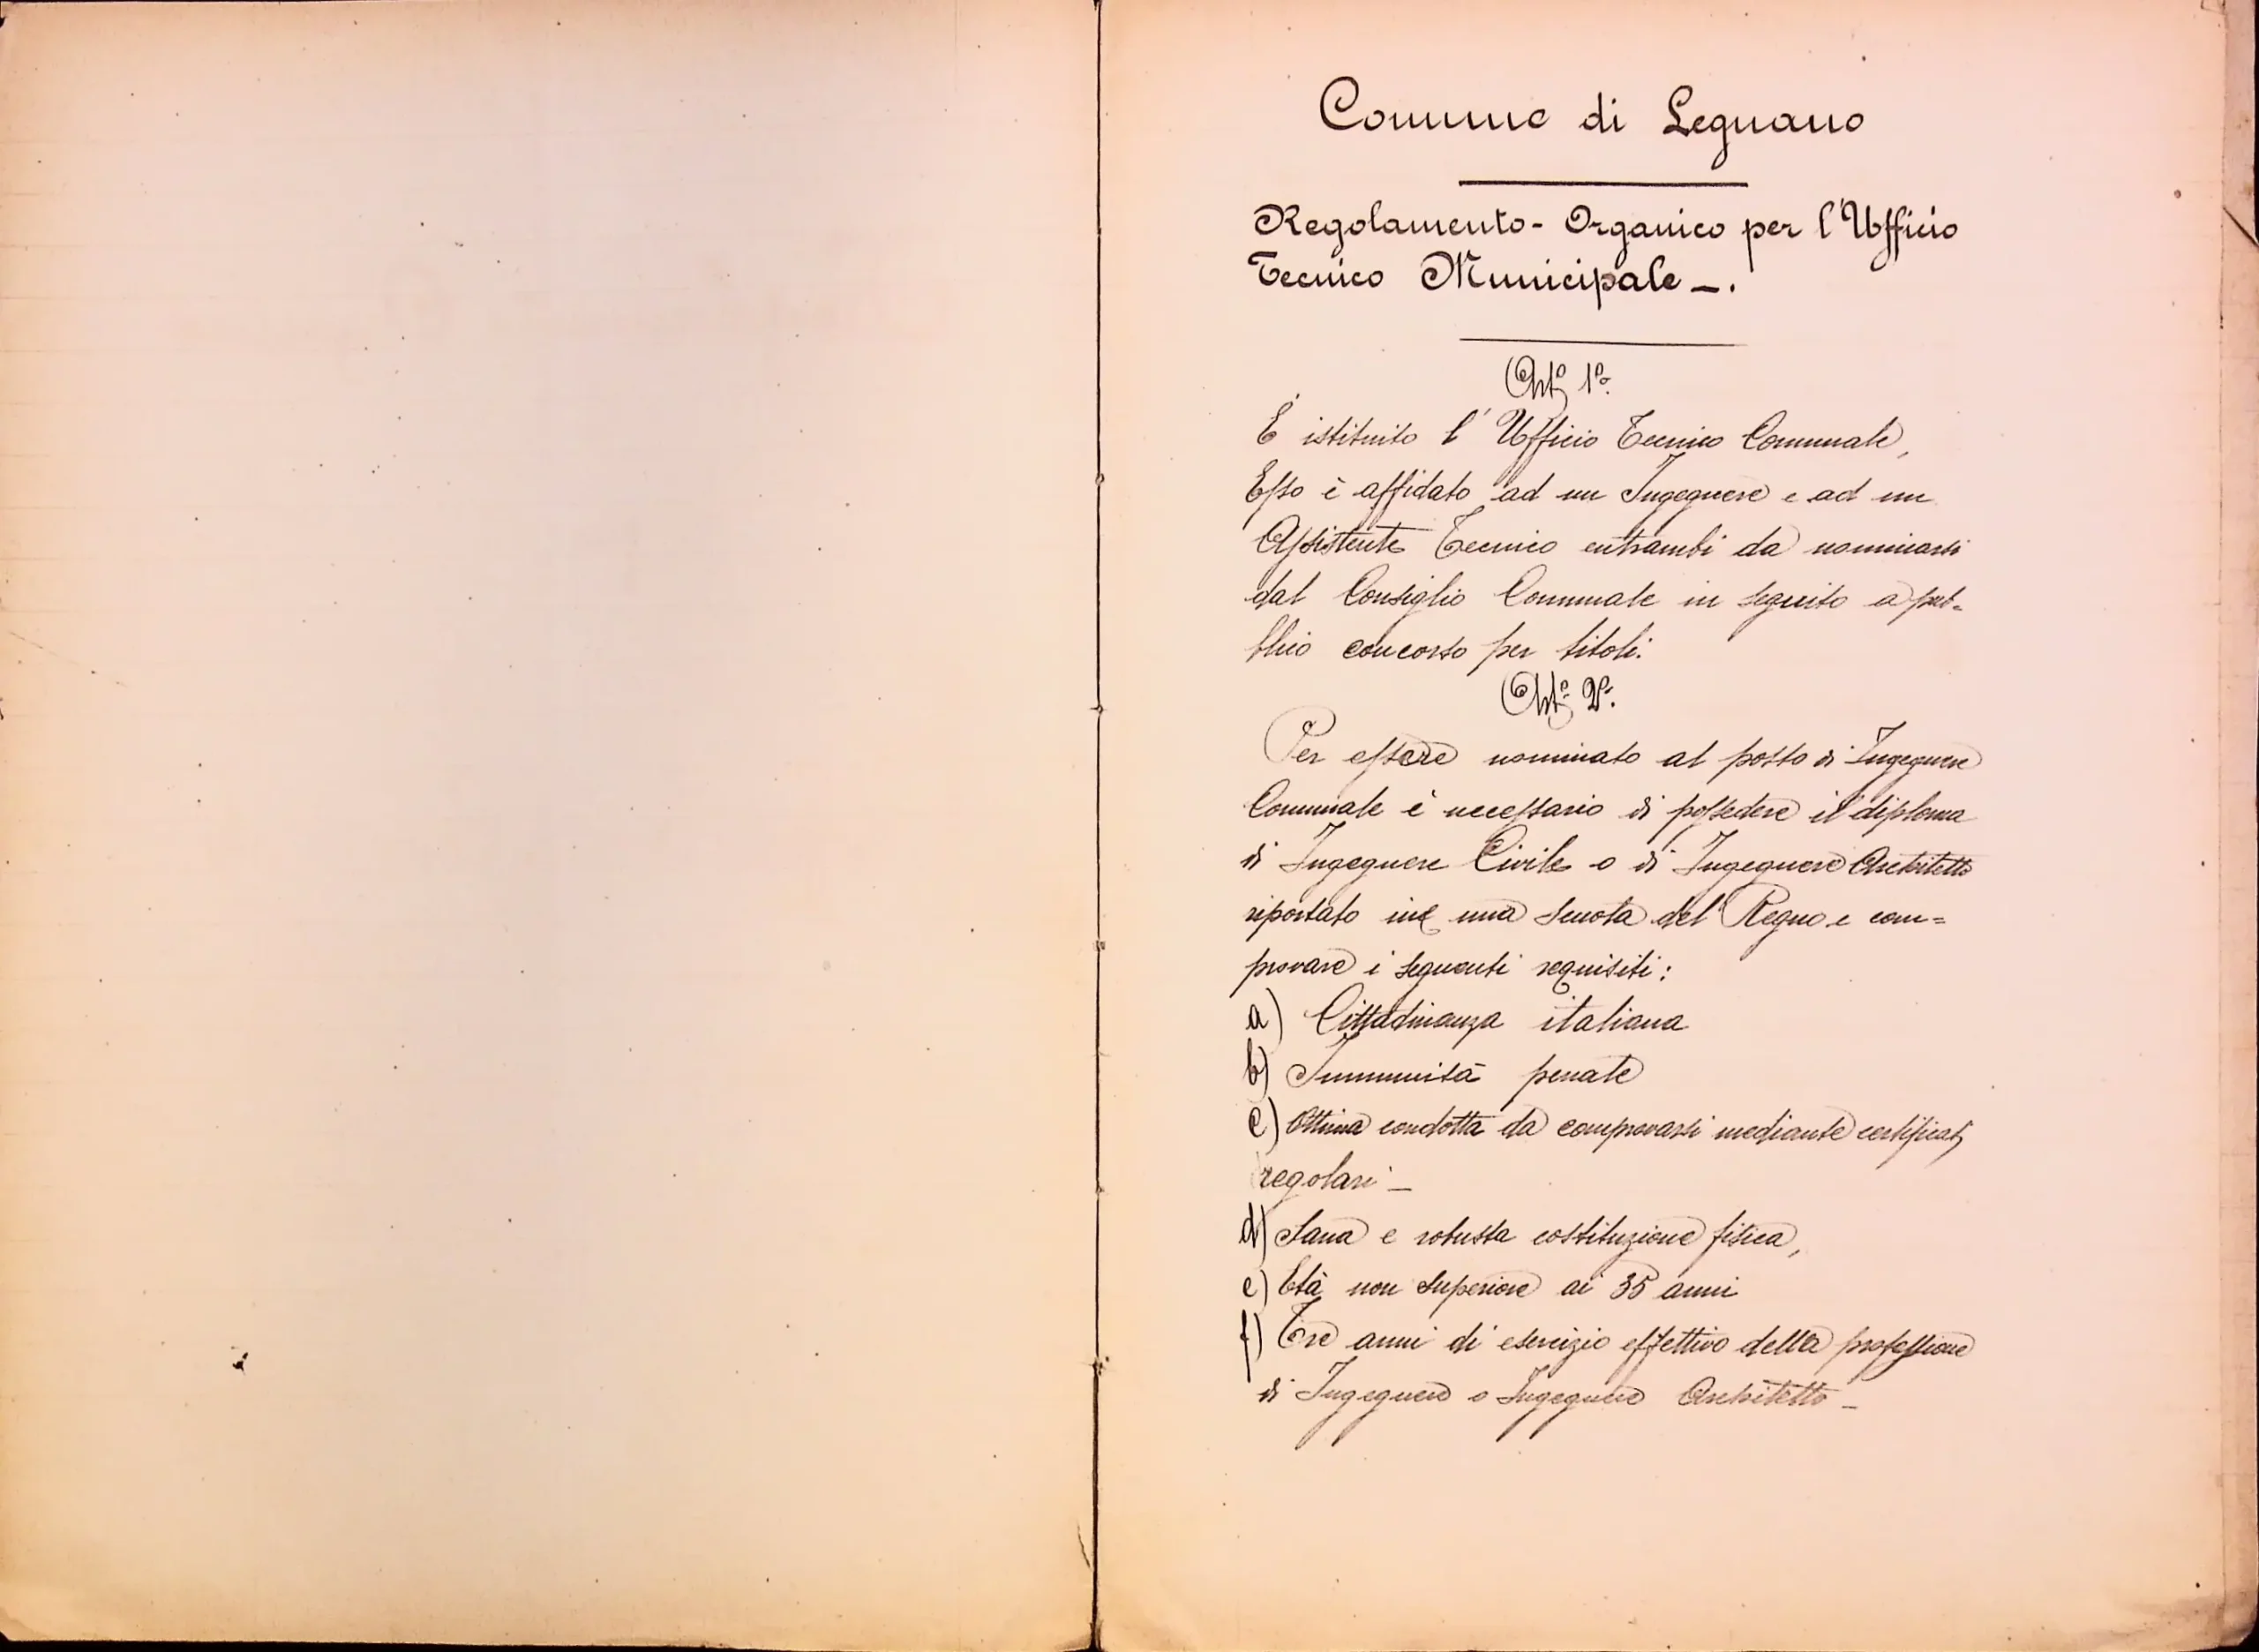 Comune di Legnano
Regolamento - Organico per l'Ufficio
Tecnico Municipale _.
Art.º 1º.
È istituito l'Ufficio Tecnico Comunale,
Esso è affidato ad un Ingegnere e ad un
Assistente Tecnico entrambi da nominarsi
dal Consiglio Comunale in seguito a pub=
blico concorso per titoli.
Art.º 2º.
Per essere nominato al posto di Ingegnere
Comunale è necessario di possedere il diploma
di Ingegnere Civile o di Ingegnere Architetto
riportato in una Scuola del Regno e com=
provare i seguenti requisiti:
a) Cittadinanza italiana
b) Immunità penale
c) Ottima condotta da comprovarsi mediante certificati
regolari _
d) Sana e robusta costituzione fisica,
e) Età non superiore ai 35 anni
f) Tre anni di esercizio effettivo della professione
di Ingegnere o Ingegnere Architetto _